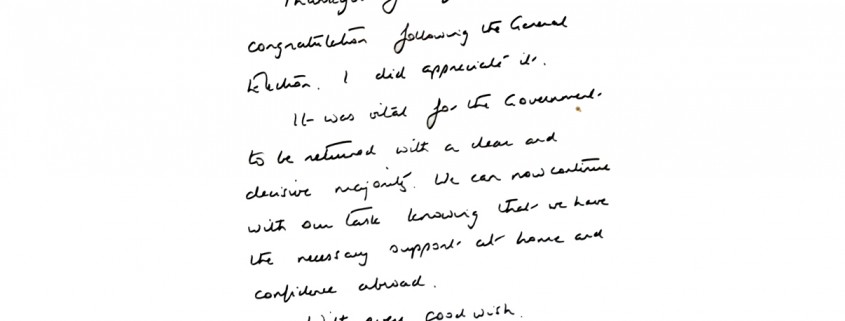 Thank you
congratulation following the General
Election. I did appreciate it.
It was vital for the Government
to be returned with a clear and
decisive majority. We can now continue
with our task knowing that we have
the necessary support at home and
confidence abroad.
With every good wish.